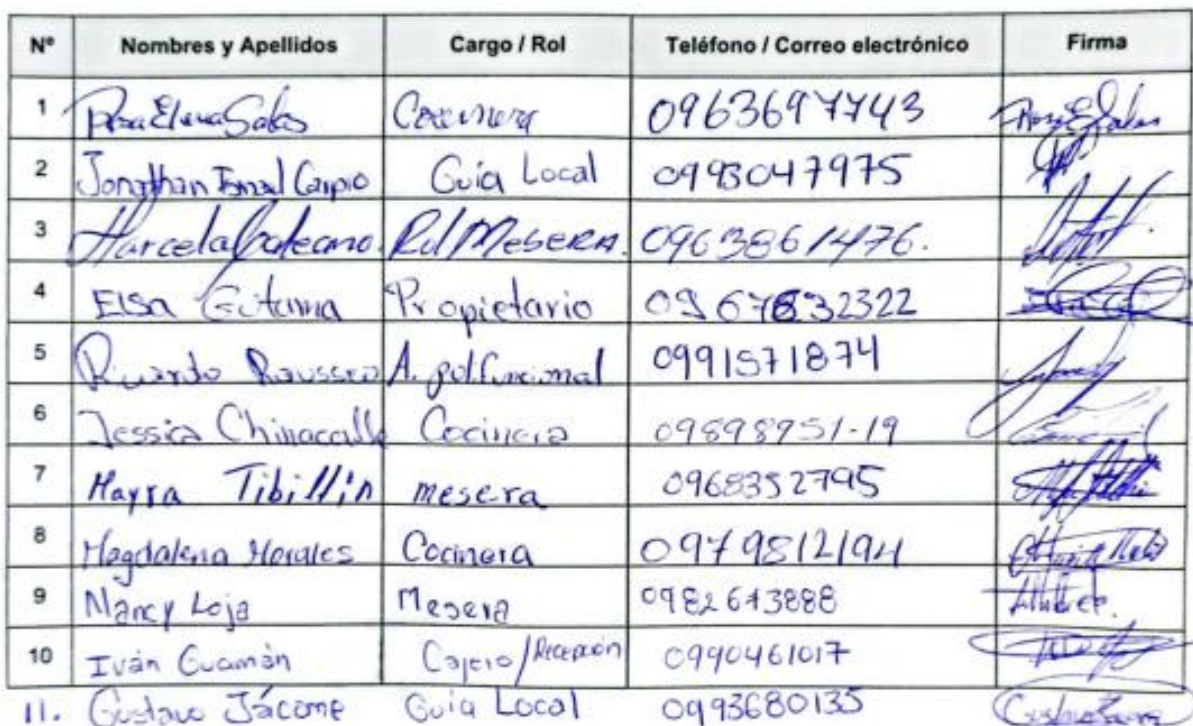 Nº Nombres y Apellidos Cargo / Rol Teléfono / Correo electrónico Firma
1 Rosa Elena Salas Cocinera 0963697743 Rosa E Salas
2 Jonathan Ismal Carpio Guía Local 0993047975
3 Marcela Galeano. Rol Mesera. 0963861476.
4 Elsa Propietario 0967832322
5 Ricardo A. polifuncional 0991571874
6 Jessica Chinocalle Cocinera 09898951-19
7 Mayra Tibillín mesera 0968352795
8 Magdalena Morales Cocinera 0979812194
9 Nancy Loja Mesera 0982643888
10 Iván Guamán Cajero/Recepción 0990461017
11. Gustavo Jácome Guía Local 0993680135